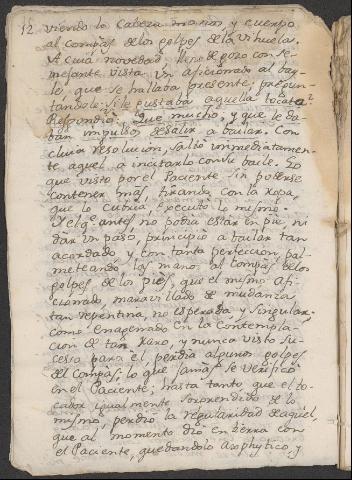 12 viendo la Cabeza manos, y cuerpo
al compás de los golpes de la vihuela.
A cuia novedad, lleno de gozo con se-
mejante vista un aficionado al bay-
le, que se hallaba presente; pregun-
tandole: Si le gustaba aquella tocata?
Respondio: Que mucho; y que le da-
ban impulsos de salir a bailar. Con
cluia resolucion, salio inmediatamen-
te aquel a incitarlo con su baile. Lo
que visto por el Paciente sin poderse
contener mas, tirando con la ropa,
que lo cubria, executó lo mismo.
Y el qe. antes, no podia estar en pie ni
dar un paso, principió a bailar tan
acordado y con tanta perfeccion, pal-
meteando, las manos, al compás de los
golpes de los pies, que el mismo afi-
cionado, maravillado de mudanza
tan repentina, no esperada y singular,
como enagenado en la contempla-
cion de tan raro, y nunca visto su-
cesso para él, perdia algunos golpes
del compás; lo que jamás se verificó
en el Paciente; hasta tanto, que el to-
cador igualmente sorprendido de lo
mismo, perdió la regularidad de aquel,
que al momento dio en tierra con
el Paciente, quedandolo asphytico, y